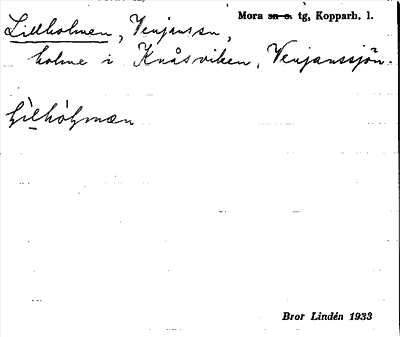 Mora sn o. tg, Kopparb. l.
Lillholmen, Venjans sn,
holme i Knåsviken, Venjanssjön.
Bror Lindén 1933